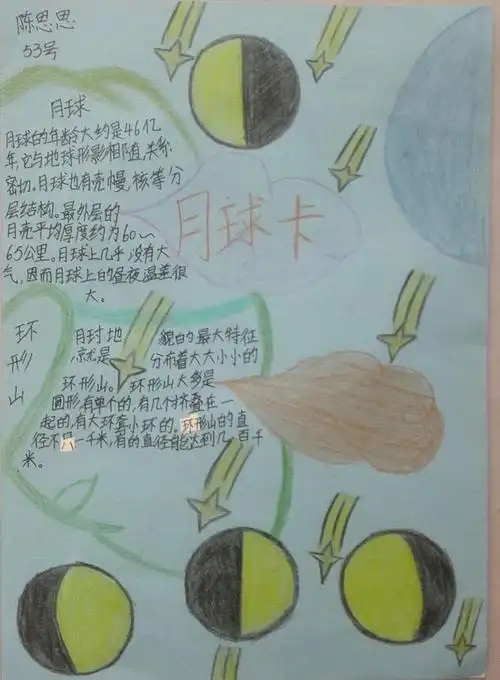 陈思思
53号
月球
月球的年龄大约是46亿
年,它与地球形影相随,关系
密切。月球也有壳、幔、核等分
层结构。最外层的
月壳平均厚度约为60~
65公里。月球上几乎没有大
气,因而月球上的昼夜温差很
大。
月球卡
环形山
月球地貌的最大特征
,就是分布着大大小小的
环形山。环形山大多是
圆形,有单个的,有几个挤叠在一
起的,有大环套小环的。环形山的直
径不只一千米,有的直径能达到几百千
米。